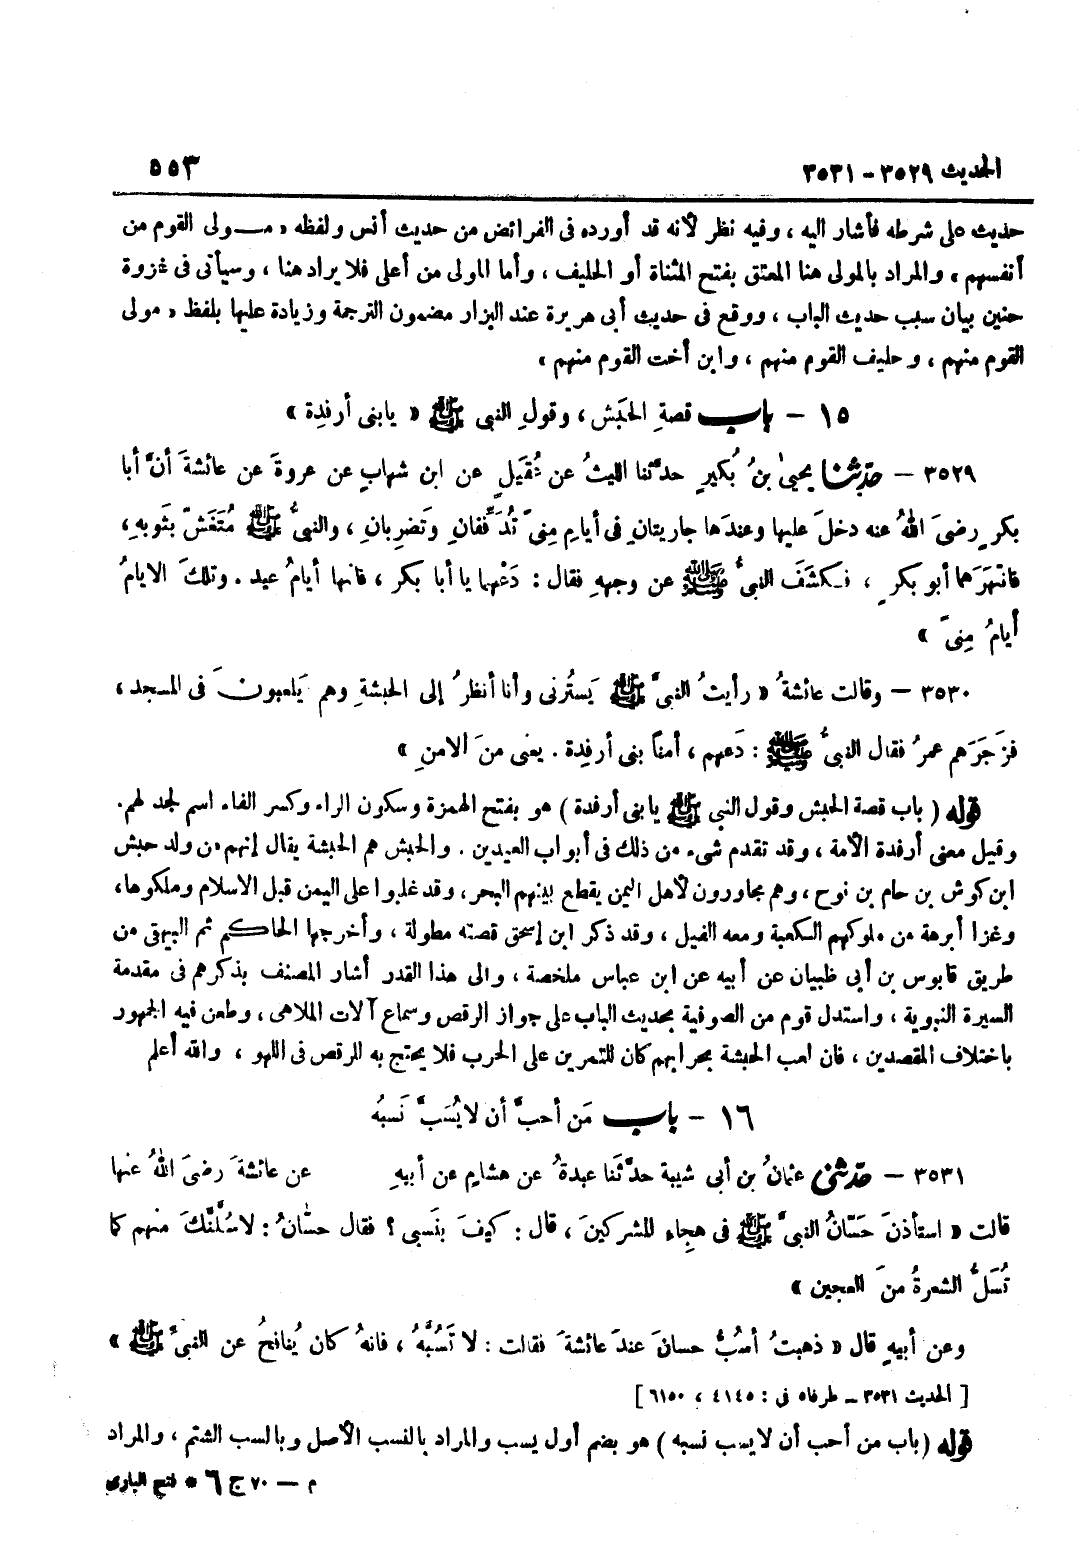 الحديث ٣٥٢٩ - ٣٥٣١ ٥٥٣
حديث على شرطه فأشار اليه ، وفيه نظر لأنه قد أورده فى الفرائض من حديث أنس ولفظه « مــولى القوم من
أنفسهم ، والمراد بالمولى هنا المعتق بفتح المثناة أو الحليف ، وأما المولى من أعلى فلا يراد هنا ، وسيأتى فى غزوة
حنين بيان سبب حديث الباب ، ووقع فى حديث أبى هريرة عند البزار مضمون الترجمة وزيادة عليها بلفظ « مولى
القوم منهم ، وحليف القوم منهم ، وابن أخت القوم منهم »
١٥ - باب قصةِ الحَبَش ، وقولِ النبى ﷺ « يابنى أرفدِة »
٣٥٢٩ - حدّثنا يحيىٰ بنُ بُكيرٍ حدَّثنا الليثُ عن عُقَيلٍ عن ابن شهابٍ عن عروةَ عن عائشةَ أنَّ أبا
بكرٍ رضىَ اللهُ عنه دخلَ عليها وعندَها جاريتانِ فى أيامِ مِنىً تُدَفِّفانِ وتَضرِبانِ ، والنبىُّ ﷺ مُتَغَشّ بثَوبهِ ،
فانتهَرَهما أبو بكرٍ ، فـكشَفَ النبىُّ ﷺ عن وجههِ فقال : دَعْهما يا أبا بكر ، فانها أيامُ عيد . وتلكَ الايامُ
أيامُ مِنىً »
٣٥٣٠ - وقالت عائشةُ « رأيتُ النبىَّ ﷺ يَسترُنى وأنا أنظرُ إلى الحبشةِ وهم يَلعبونَ فى المسجد ،
فزَجَرَهم عمرُ فقال النبىُّ ﷺ : دَعهم ، أمناً بنى أرفِدة . يعنى منَ الامنِ »
قوله ( باب قصة الحبش وقول النبى ﷺ يابنى أرفدة ) هو بفتح الهمزة وسكون الراء وكسر الفاء اسم لجد لهم.
وقيل معنى أرفدة الأمة ، وقد تقدم شىء من ذلك فى أبواب العيدين . والحبش هم الحبشة يقال إنهم من ولد حبش
ابن كوش بن حام بن نوح ، وهم مجاورون لأهل اليمن يقطع بينهم البحر ، وقد غلبوا على اليمن قبل الاسلام وملكوها،
وغزا أبرهة من ملوكهم الكعبة ومعه الفيل ، وقد ذكر ابن إسحق قصته مطولة ، وأخرجها الحاكم ثم البيهقى من
طريق قابوس بن أبى ظبيان عن أبيه عن ابن عباس ملخصة ، والى هذا القدر أشار المصنف بذكرهم فى مقدمة
السيرة النبوية ، واستدل قوم من الصوفية بحديث الباب على جواز الرقص وسماع آلات الملاهى ، وطعن فيه الجمهور
باختلاف المقصدين ، فان لعب الحبشة بحرابهم كان للتمرين على الحرب فلا يحتج به للرقص فى اللهو ، والله أعلم
١٦ - باب مَن أحبَّ أن لا يُسَبَّ نَسبُه
٣٥٣١ - حدّثنى عثمانُ بن أبى شيبة حدَّثَنا عبدةُ عن هشامٍ عن أبيهِ عن عائشةَ رضىَ اللهُ عنها
قالت « استأذنَ حَسّانُ النبىَّ ﷺ فى هِجاءِ المشركينَ ، قال : كيفَ بنَسبى ؟ فقال حسّانُ : لاسُلَّنَّكَ منهم كما
تُسَلُّ الشعرةُ منَ العجين »
وعن أبيهِ قال « ذهبتُ أسُبُّ حسانَ عندَ عائشةَ فقالت : لا تَسُبَّهُ ، فانهُ كان يُنافحُ عن النبىَّ ﷺ »
[ الحديث ٣٥٣١ ـ طرفاه فى : ٤١٤٥ ، ٦١٥٠ ]
قوله ( باب من أحب أن لا يسب نسبه ) هو بضم أول يسب والمراد بالنسب الأصل وبالسب الشتم ، والمراد
م — ٧٠ ج ٦ * فتح البارى